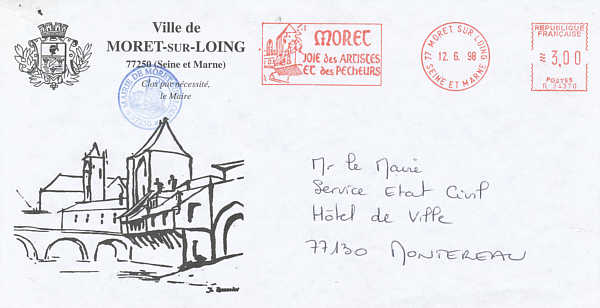 Ville de
MORET-SUR-LOING
77250 (Seine et Marne)
Clos par nécessité,
le Maire
MAIRIE DE MORET
MORET
JOIE des ARTISTES
ET des PECHEURS
77 MORET SUR LOING
12. 6. 98
SEINE ET MARNE
REPUBLIQUE
FRANCAISE
3,00
POSTES
Mr le Maire
Service Etat Civil
Hôtel de Ville
77130 MONTEREAU